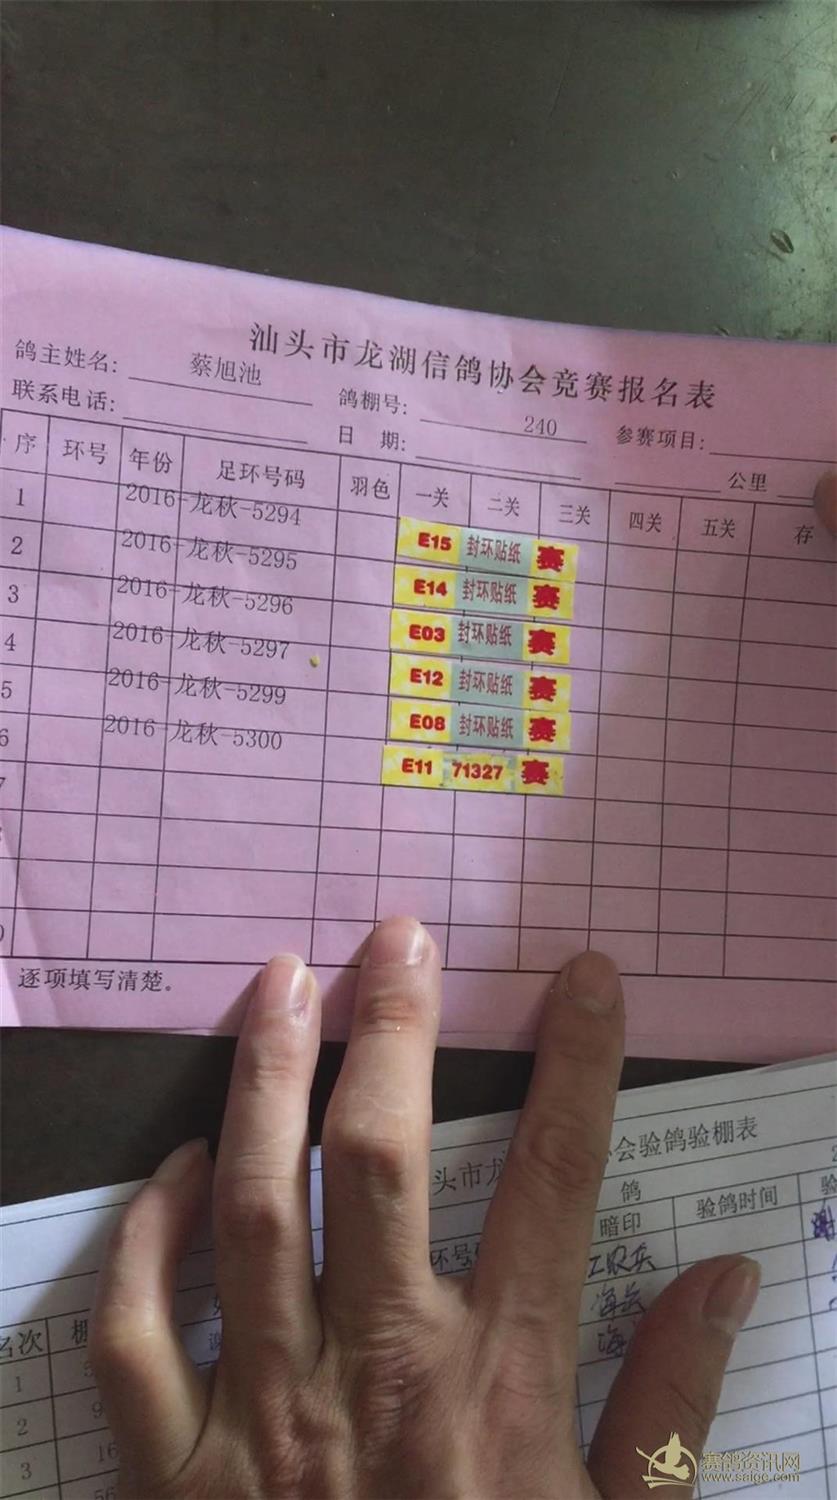 汕头市龙湖信鸽协会竞赛报名表
鸽主姓名: 蔡旭池 鸽棚号: 240 参赛项目:
联系电话: 日 期: 公里
序 环号 年份 足环号码 羽色 一关 二关 三关 四关 五关 存
1 2016-龙秋-5294 E15 封环贴纸 赛
2 2016-龙秋-5295 E14 封环贴纸 赛
3 2016-龙秋-5296 E03 封环贴纸 赛
4 2016-龙秋-5297 E12 封环贴纸 赛
5 2016-龙秋-5299 E08 封环贴纸 赛
6 2016-龙秋-5300 E11 71327 赛
逐项填写清楚。
头市龙 会验鸽验棚表
鸽
环号 暗印 验鸽时间 验
名次 棚
1
2 9
3 16
56
赛鸽资讯网
www.saige.com